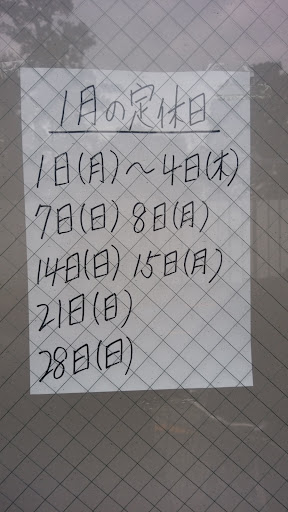 1月の定休日
1日(月)～4日(木)
7日(日) 8日(月)
14日(日) 15日(月)
21日(日)
28日(日)